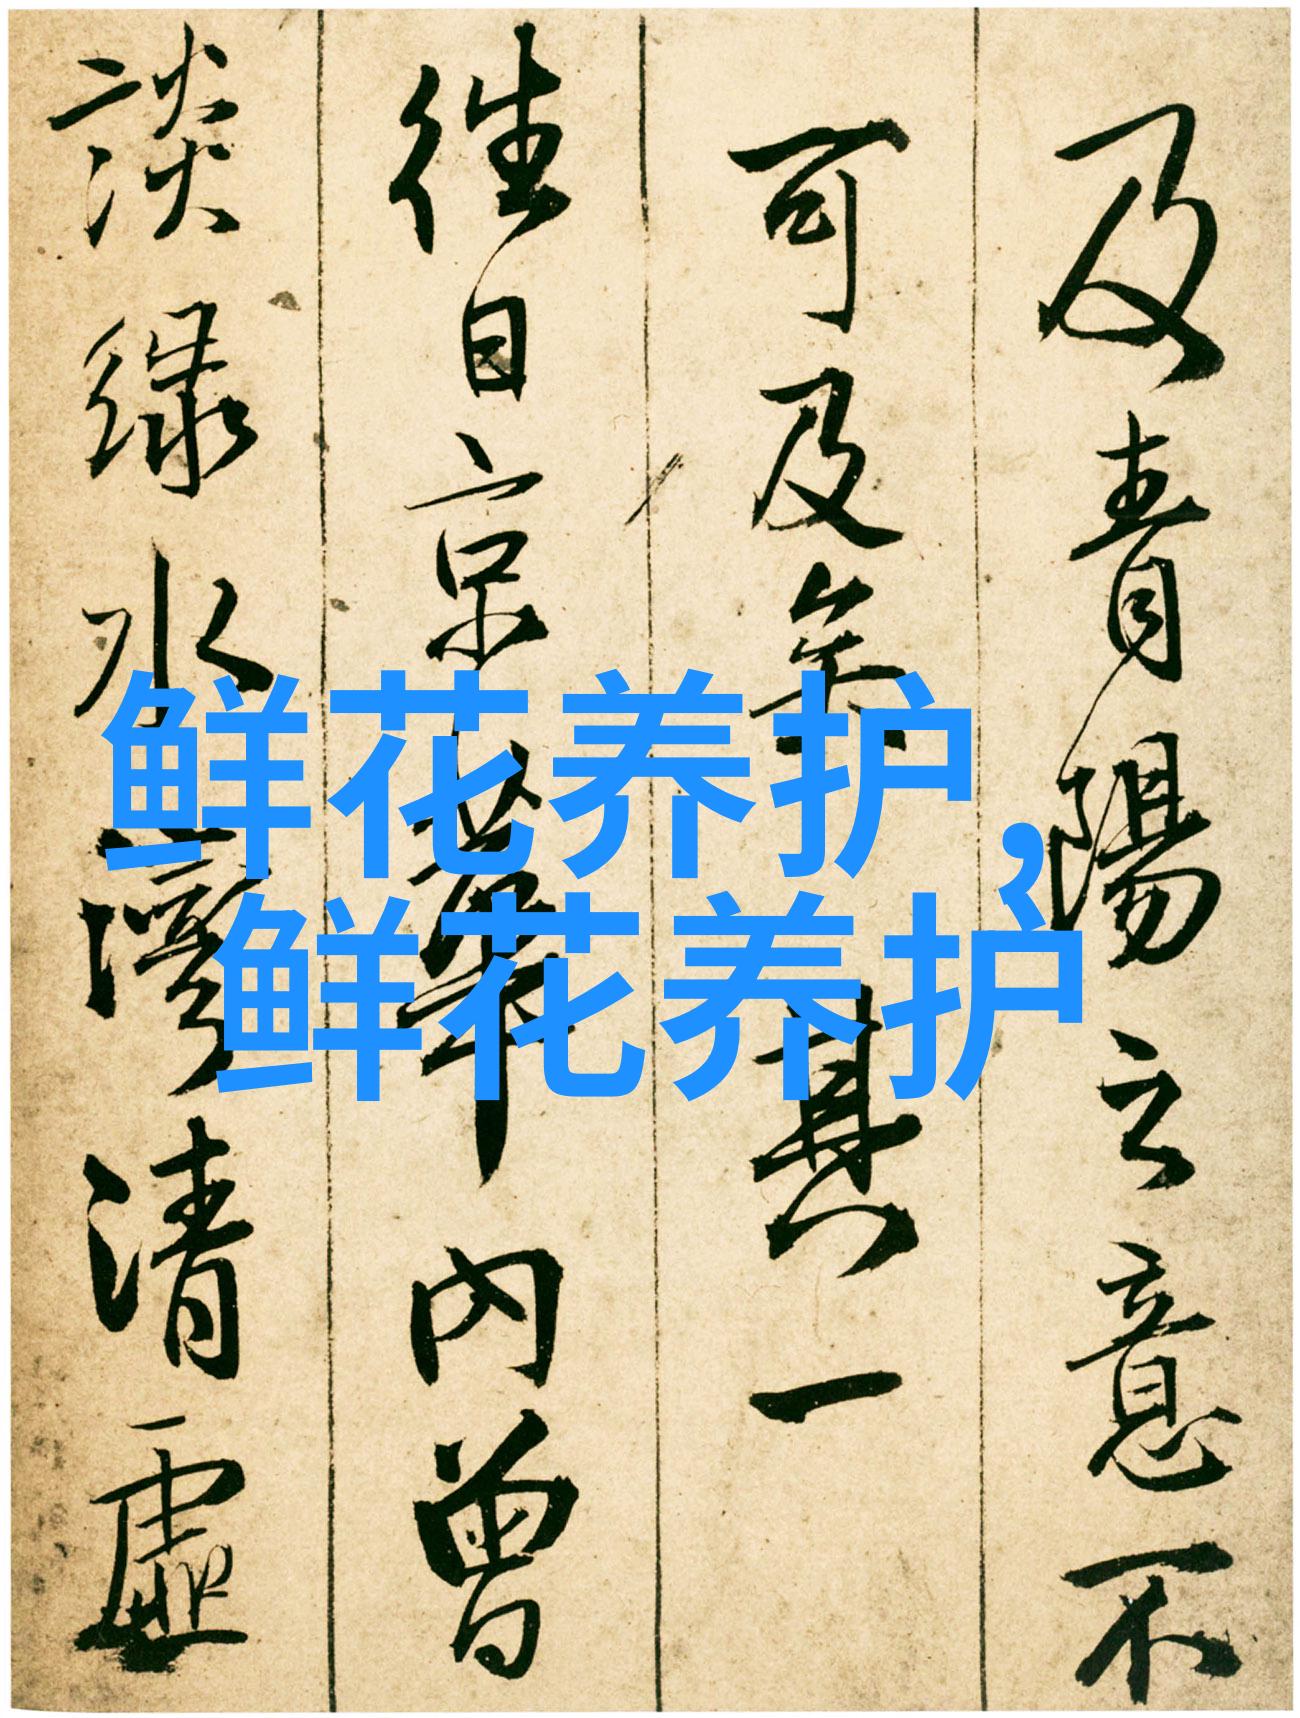 及青陽之意不
可及矣其一
往日京華内曾
談綠水灣清虛
鲜花养护,
鲜花养护